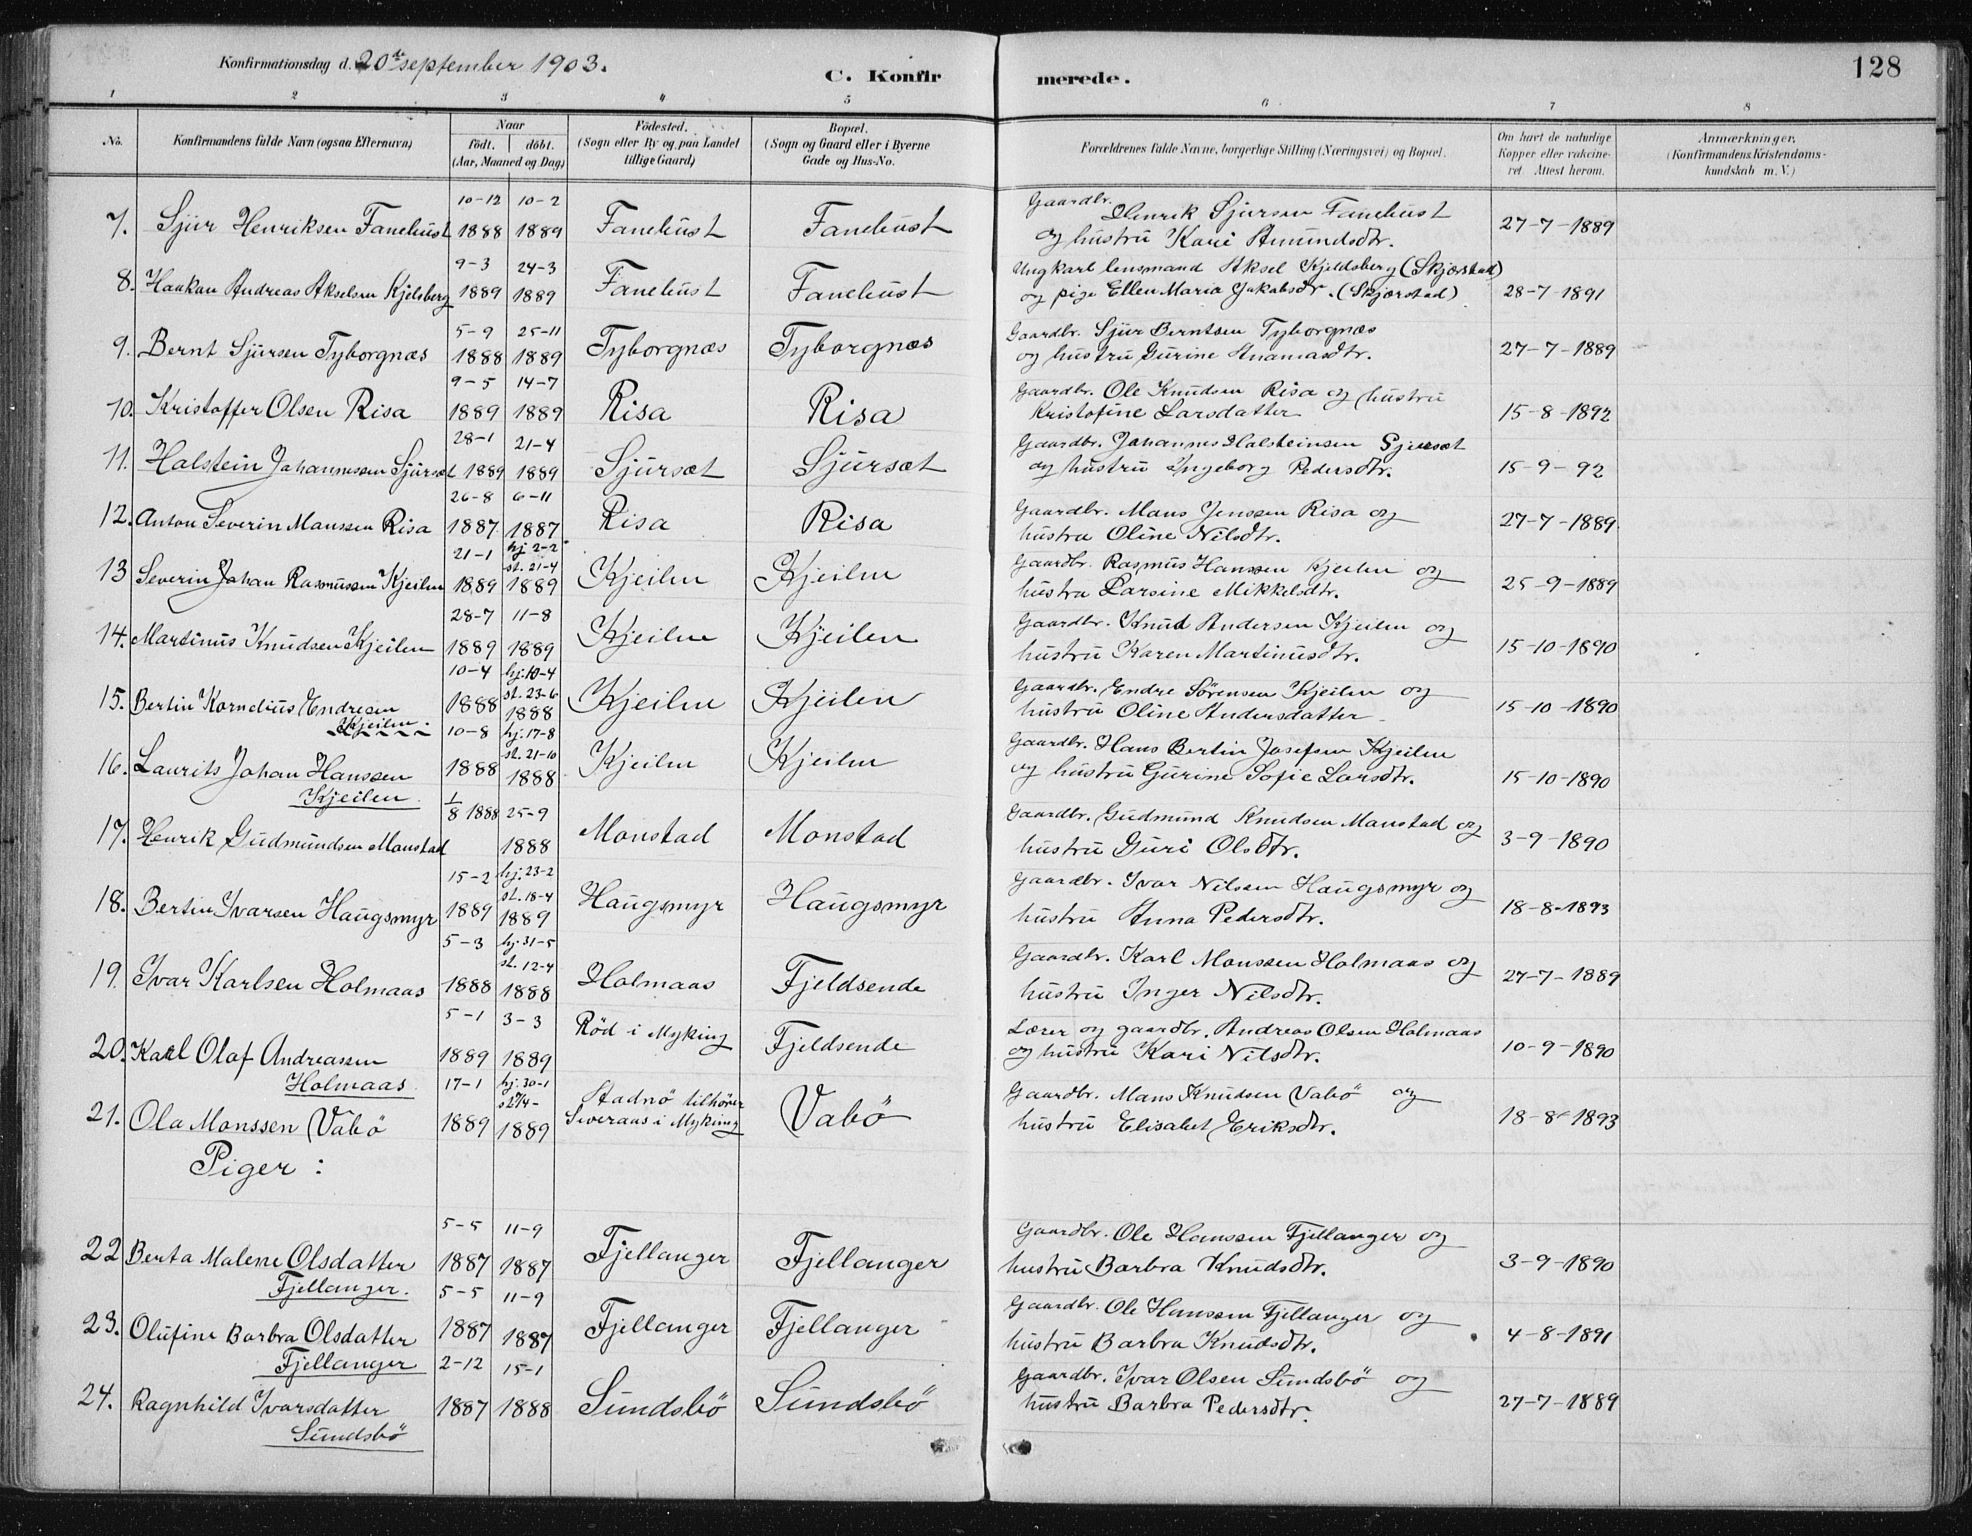 Konfirmationsdag d. 20de september 1903.
C. Konfir merede.
128
1 2 3 4 5 6 7 8
No.
Konfirmandens fulde Navn (ogsaa Efternavn)
Naar
födt. döbt.
(Aar, Maaned og Dag)
Födested.
(Sogn eller By og paa Landet
tillige Gaard)
Bopæl.
(Sogn og Gaard eller i Byerne
Gade og Hus-No.
Forældrenes fulde Navne, borgerlige Stilling (Næringsvei) og Bopæl.
Om havt de naturlige
Kopper eller vakcine-
ret. Attest herom.
Anmærkninger.
(Konfirmandens Kristendoms-
kundskab m. V.)
10-12 10-2 Gaardbr.
7. Sjur Henriksen Fanebust 1888 1889 Fanebust Fanebust Henrik Sjursen Fanebust
og hustru Kari Amundsdtr. 27-7-1889
9-3 24-3 Ungkarl lensmand Aksel Kjeldsberg (Skjærstad)
8. Haakan Andreas Akselsen Kjelsberg 1889 1889 Fanebust Fanebust og pige Ellen Maria Jakabsdr. (Skjærstad) 28-7-1891
5-9 25-11 Gaardbr. Sjur Berntsen Tyborgnæs
9. Bernt Sjursen Tyborgnæs 1888 1889 Tyborgnæs Tyborgnæs og hustru Gurine Ananiasdtr. 27-7-1889
9-5 14-7 Gaardbr. Ole Knudsen Risa og hustru
10. Kristoffer Olsen Risa 1889 1889 Risa Risa Kristofine Larsdatter 15-8-1892
28-1 21-4 Gaardbr. Johannes Halsteinsen Sjursæt
11. Halstein Johannessen Sjursæt 1889 1889 Sjursæt Sjursæt og hustru Ingeborg Pedersdtr. 15-9-92
26-8 6-11 Gaardbr. Mans Jenssen Risa og
12. Anton Severin Manssen Risa 1887 1887 Risa Risa hustru Oline Nilsdtr. 27-7-1889
21-1 hj. 2-2 st. 21-4 Gaardbr. Rasmus Hanssen Kjeilen og
13 Severin Johan Rasmussen Kjeilen 1889 1889 Kjeilen Kjeilen hustru Larsine Mikkelsdtr. 25-9-1889
28-7 11-8 Gaardbr. Knud Andersen Kjeilen og
14. Martinus Knudsen Kjeilen 1889 1889 Kjeilen Kjeilen hustru Karen Martinusdtr. 15-10-1890
10-4 hj. 10-4 st. 23-6 Gaardbr. Endre Sörensen Kjeilen og
15. Bertin Kornelius Endresen 1888 1888 Kjeilen Kjeilen hustru Oline Andersdatter 15-10-1890
Kjeilen.
10-8 hj. 17-8 st. 21-10 Gaardbr. Hans Bertin Josefsen Kjeilen
16. Laurits Johan Hanssen 1888 1888 Kjeilen Kjeilen og hustru Gurine Sofie Larsdtr. 15-10-1890
Kjeilen.
1/8 1888 25-9 Gaardbr. Gudmund Knudsen Monstad og
17. Henrik Gudmundsen Monstad 1888 Monstad Monstad hustru Guri Olsdtr. 3-9-1890
15-2 hj. 23-2 st. 18-4 Gaardbr. Ivar Nilsen Haugsmyr og
18. Bertin Ivarsen Haugsmyr 1889 1889 Haugsmyr Haugsmyr hustru Anna Pedersdtr. 18-8-1893
5-3 hj. 31-5 st. 12-4 Gaardbr. Karl Monssen Holmaas og
19. Ivar Karlsen Holmaas 1888 1888 Holmaas Fjeldsende hustru Inger Nilsdtr. 27-7-1889
5-1 3-3 Röd i Myking Lærer og gaardbr. Andreas Olsen Holmaas
20. Karl Olaf Andreassen 1889 1889 Fjeldsende og hustru Kari Nilsdtr. 10-9-1890
Holmaas.
17-1 hj. 30-1 Stadnö tilhörer Gaardbr. Mans Knudsen Vabö og
21. Ola Monssen Vabö 1889 1889 Severaas i Myking Vabö hustru Elisabet Eriksdtr. 18-8-1893
Piger:
5-5 11-9 Gaardbr. Ole Hanssen Fjellanger og
22 Berta Malene Olsdatter 1887 1887 Fjellanger Fjellanger hustru Barbra Knudsdtr. 3-9-1890
Fjellanger.
5-5 11-9 Gaardbr. Ole Hanssen Fjellanger og
23. Olufine Barbra Olsdatter 1887 1887 Fjellanger Fjellanger hustru Barbra Knudsdtr. 4-8-1891
Fjellanger
2-12 15-1 Gaardbr. Ivar Olsen Sundsbö og
24. Ragnhild Ivarsdatter 1887 1888 Sundsbö Sundsbö hustru Barbra Pedersdtr. 27-7-1889
Sundsbö